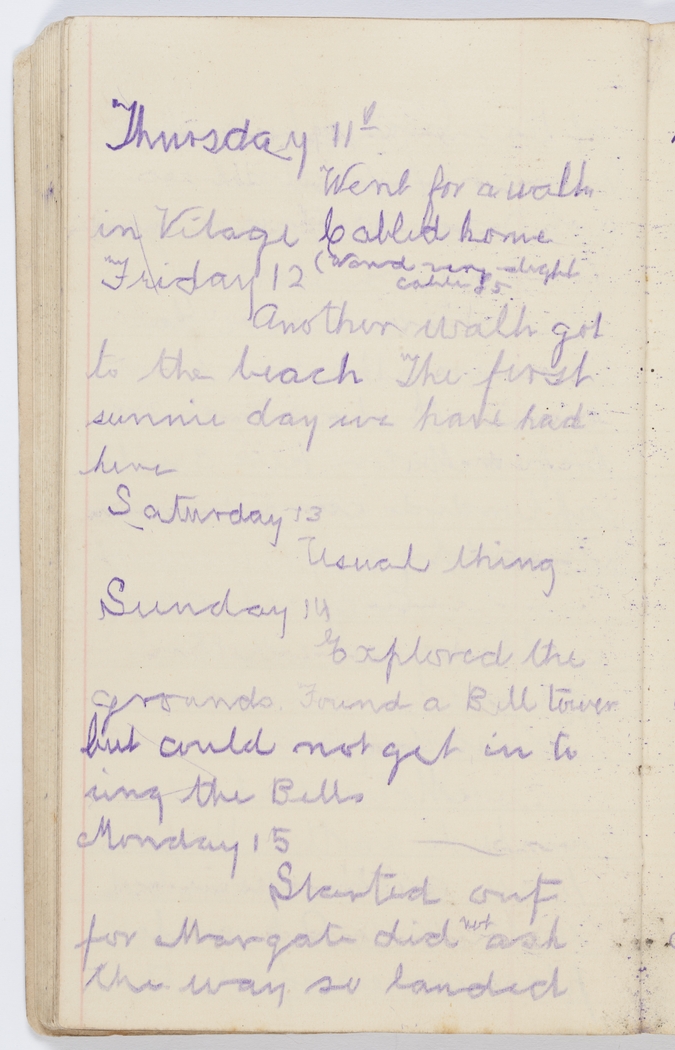 Thursday 11th
Went for a walk
in Vilage Cabled home
Friday 12 (Wound very slight
cable £5
Another walk got
to the beach The first
sunnie day we have had
here
Saturday 13
Usual thing
Sunday 14
Explored the
grounds. Found a Bell tower
but could not get in to
ring the Bells
Monday 15
Started out
for Margate did not ask
the way so landed